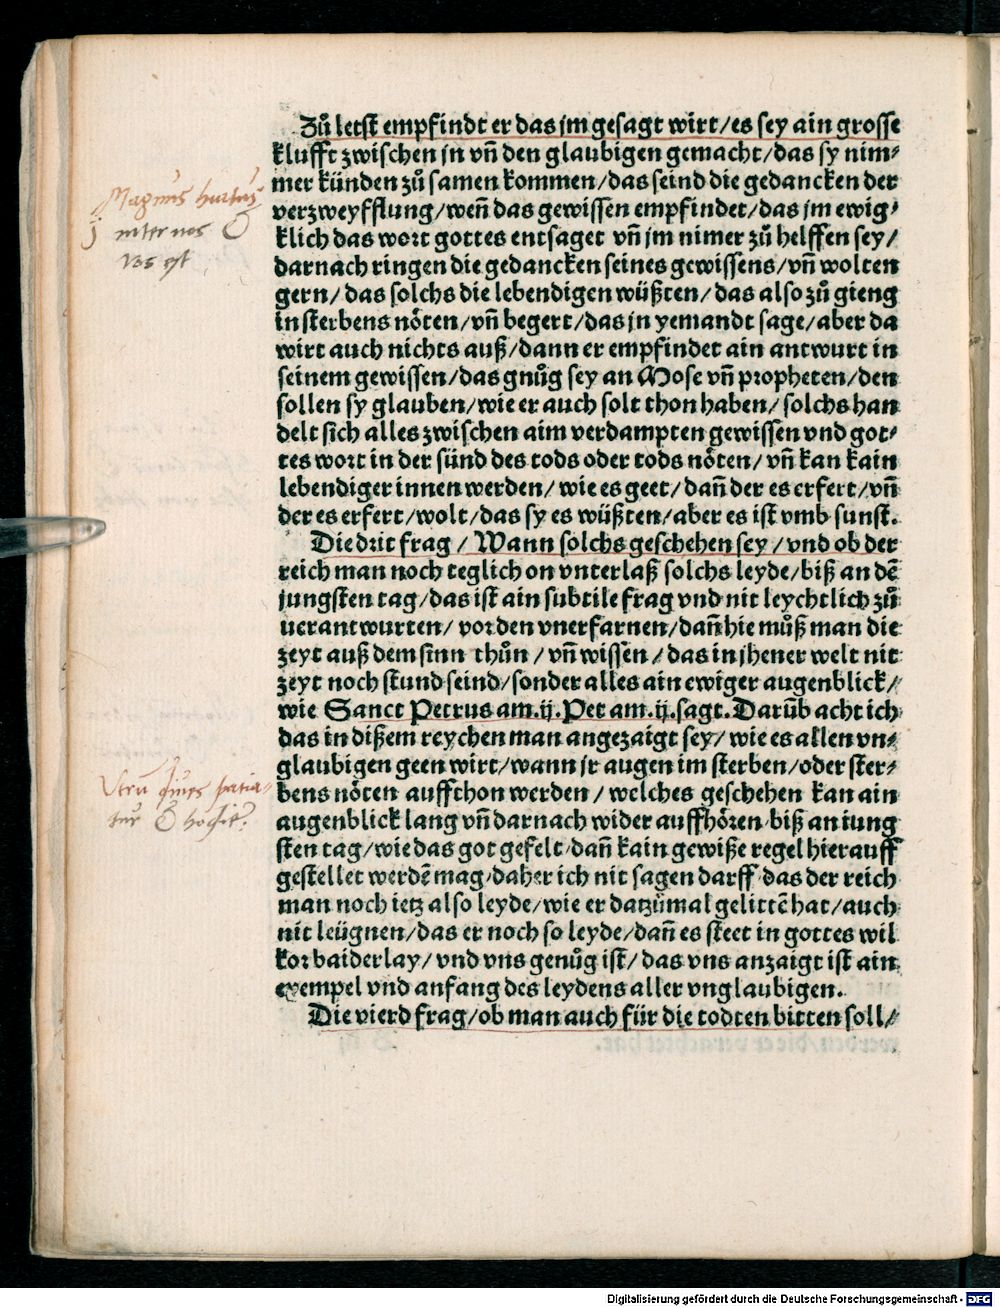 Zů letst empfindt er das jm gesagt wirt/es sey ain grosse
klufft zwischen jn vñ den glaubigen gemacht/das sy nim⸗
mer künden zů samen kommen/das seind die gedancken der
verzweyfflung/weñ das gewissen empfindet/das jm ewig⸗
klich das wort gottes entsaget vñ jm nimer zů helffen sey/
darnach ringen die gedancken seines gewissens/vñ wolten
gern/das solchs die lebendigen wüßten/das also zů gieng
in sterbens nöten/vñ begert/das jn yemandt sage/aber da
wirt auch nichts auß/dann er empfindet ain antwurt in
seinem gewissen/das gnůg sey an Mose vñ propheten/den
sollen sy glauben/wie er auch solt thon haben/solchs han
delt sich alles zwischen aim verdampten gewissen vnd got⸗
tes wort in der sünd des tods oder tods nöten/vñ kan kain
lebendiger innen werden/wie es geet/dañ der es erfert/vñ
der es erfert/wolt/das sy es wüßten/aber es ist vmb sunst.
Die drit frag/Wann solchs geschehen sey/vnd ob der
reich man noch teglich on vnterlaß solchs leyde/biß an dē
jungsten tag/das ist ain subtile frag vnd nit leychtlich zů
uerantwurten/vor den vnerfarnen/dañ hie můß man die
zeyt auß dem sinn thůn/vñ wissen/das in jhener welt nit
zeyt noch stund seind/sonder alles ain ewiger augenblick/
wie Sanct Petrus am.ij.Pet am.ij.sagt.Darüb acht ich
das in dißem reychen man angezaigt sey/wie es allen vn⸗
glaubigen geen wirt/wann jr augen im sterben/oder ster⸗
bens nöten auffthon werden/welches geschehen kan ain
augenblick lang vñ darnach wider auffhören/biß an iung
sten tag/wie das got gefelt/dañ kain gewiße regel hierauff
gestellet werdē mag/daher ich nit sagen darff/das der reich
man noch ietz also leyde/wie er datzůmal gelittē hat/auch
nit leügnen/das er noch so leyde/dañ es steet in gottes wil
kor baiderlay/vnd vns genůg ist/das vns anzaigt ist ain
exempel vnd anfang des leydens aller vnglaubigen.
Die vierd frag/ob man auch für die todten bitten soll/
Magnus
inter nos
vos est
Vtru
hodie?
Digitalisierung gefördert durch die Deutsche Forschungsgemeinschaft - DFG